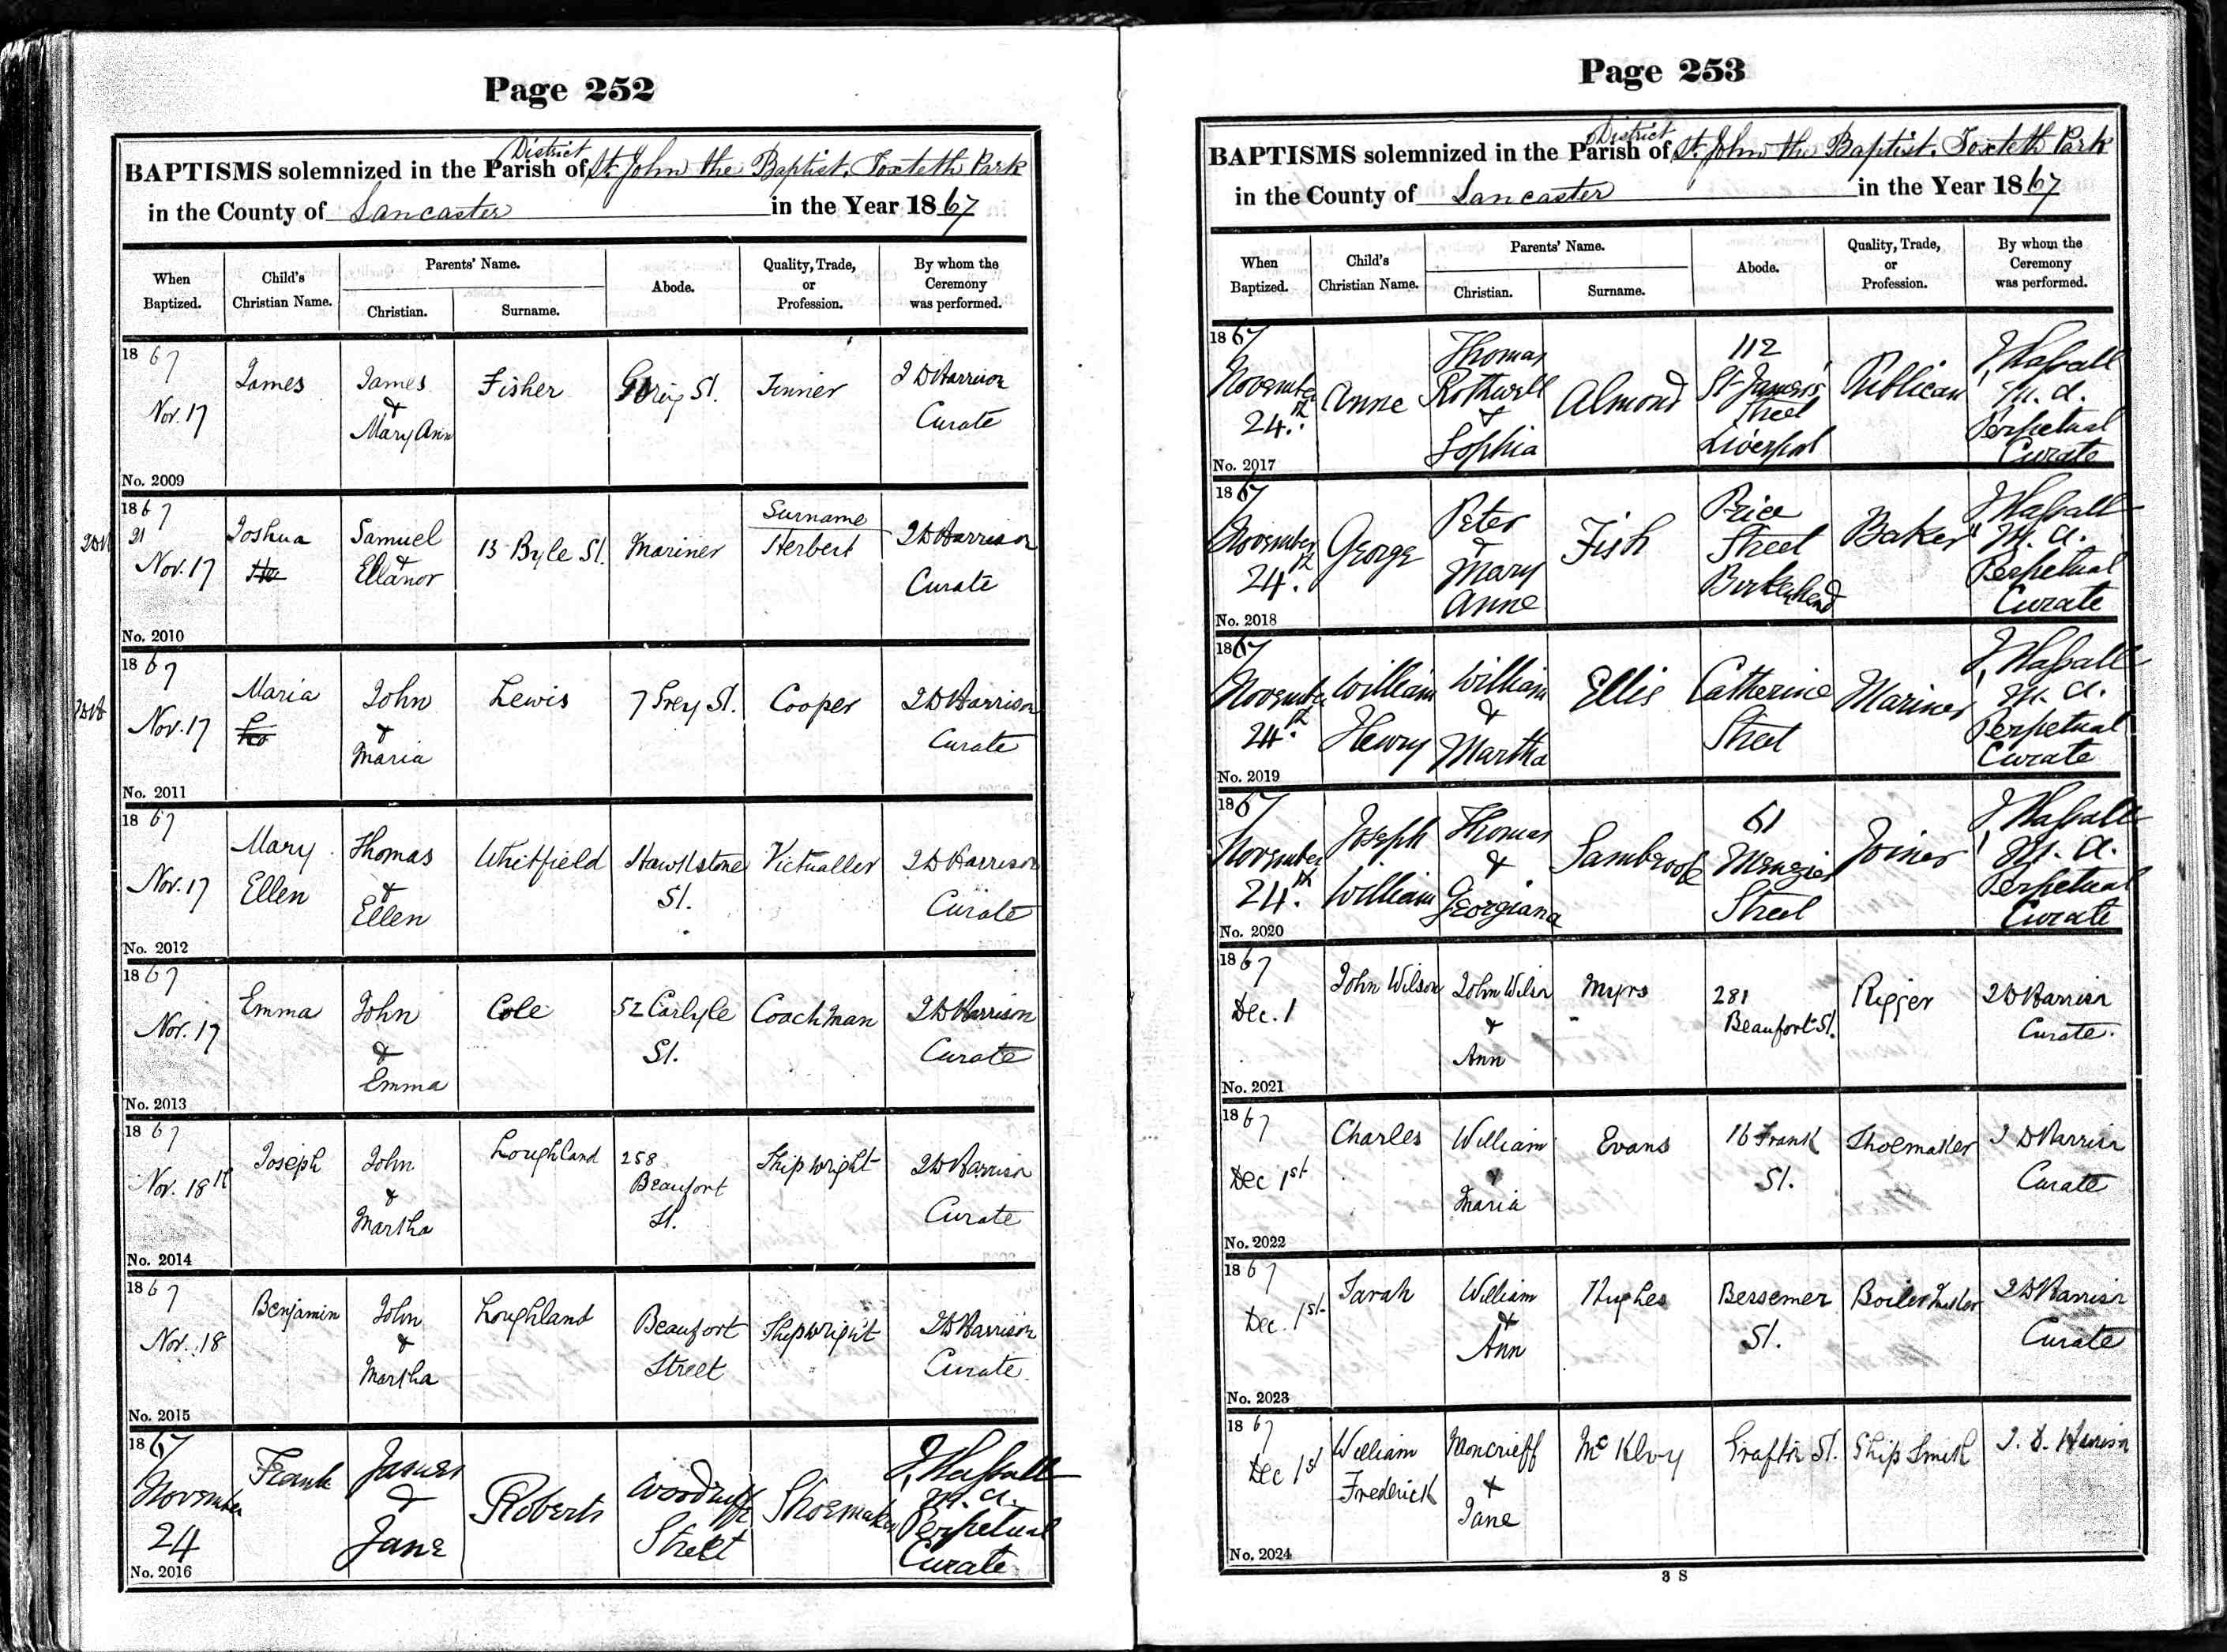 Page 252
BAPTISMS solemnized in the Parish of District St. John the Baptist, Toxteth Park
in the County of Lancaster in the Year 1867
When Baptized. Child's Christian Name. Parents' Name. Christian. Surname. Abode. Quality, Trade, or Profession. By whom the Ceremony was performed.
1867
Nov. 17 James James & Mary Ann Fisher St. Harrison Curate
No. 2009
1867
21
Nov. 17 Joshua Samuel & Ellanor 13 St. Mariner Surname Herbert Harrison Curate
No. 2010
1867
Nov. 17 Maria John & Maria Lewis 7 Grey St. Cooper Harrison Curate
No. 2011
1867
Nov. 17 Mary Ellen Thomas & Ellen Whitfield Hawkstone St. Victualler Harrison Curate
No. 2012
1867
Nov. 17 Emma John & Emma Cole 52 Carlyle St. Coachman Harrison Curate
No. 2013
1867
Nov. 18th Joseph John & Martha Loughland 258 Beaufort St. Shipwright Harrison Curate
No. 2014
1867
Nov. 18 Benjamin John & Martha Loughland Beaufort Street Shipwright Harrison Curate
No. 2015
1867
November 24 Frank James & Jane Roberts Woodruffe Street Shoemaker J. Hassall M.A. Perpetual Curate
No. 2016
Page 253
BAPTISMS solemnized in the Parish of District St. John the Baptist, Toxteth Park
in the County of Lancaster in the Year 1867
When Baptized. Child's Christian Name. Parents' Name. Christian. Surname. Abode. Quality, Trade, or Profession. By whom the Ceremony was performed.
1867
November 24th. Anne Thomas Rothwell & Sophia Almond 112 St James's Street Liverpool Publican J. Hassall M.A. Perpetual Curate
No. 2017
1867
November 24th. George Peter & Mary Anne Fish Price Street Birkenhead Baker J. Hassall M.A. Perpetual Curate
No. 2018
1867
November 24th. William Henry William & Martha Ellis Catherine Street Mariner J. Hassall M.A. Perpetual Curate
No. 2019
1867
November 24th. Joseph William Thomas & Georgiana Sambrook 61 Menzies Street Joiner J. Hassall M.A. Perpetual Curate
No. 2020
1867
Dec. 1 John Wilson John Wilson & Ann Myrs 281 Beaufort St. Rigger Harrison Curate.
No. 2021
1867
Dec 1st Charles William & Maria Evans 16 Frank St. Shoemaker Harrison Curate
No. 2022
1867
Dec. 1st Sarah William & Ann Hughes Bessemer St. Boiler Harrison Curate
No. 2023
1867
Dec 1st William Frederick Moncrieff & Jane McKlvy Grafton St. Ship Smith J. D. Harrison
No. 2024
3 S